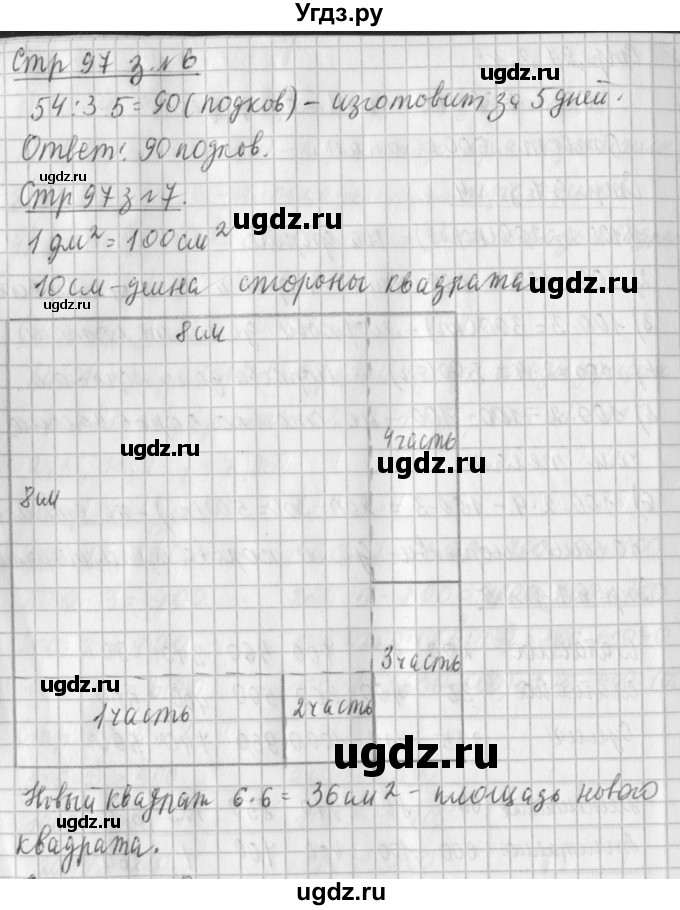 Угдз.ру
Стр 97 з. № 6
54:3 5=90(подков) - изготовит за 5 дней.
Ответ: 90 подков.
Стр 97 з № 7.
ugdz.ru
ugdz.ru
1 дм² = 100 см²
10 см - длина стороны квадрата
ugdz.ru
ugdz.ru
8 см
ugdz.ru
4 часть
ugdz.ru
8 см
3 часть
ugdz.ru
ugdz.ru
1 часть
2 часть
ugdz.ru
Новый квадрат 6·6 = 36 см² - площадь нового
квадрата.
ugdz.ru
ugdz.ru